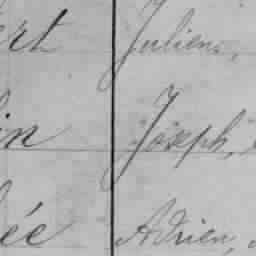 ert Julien,
in Joseph,
ée Adrien,